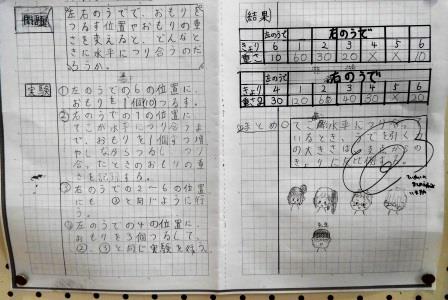 問題
左右のうでで、おもりを
つるす位置やおもりの重
さを変えると、どんなと
きに水平につり合うのだ
ろうか。
実験
①左のうでの6の位置に、
おもりを1個(10)つるす。
②右のうでの1の位置に
てこが水平につり合うよ
うで、おもりを1個ずつ増
やしながらつるし、つり
合ったときのおもりの重
さを記録する。
③右のうでの2〜6の位置
にも②と同じように行
う。
④左のうでの4の位置に、
おもりを3個つるして、
②、③と同じ実験を行う。
(結果)
左のうで 右のうで
きょり 6 1 2 3 4 5 6
重さ 10 60 30 20 × × 10
左のうで 右のうで
きょり 4 1 2 3 4 5 6
重さ 30 120 60 40 30 × 20
まとめ
てこが水平につり合っ
ているとき、うでを引く力
の大きさは
きょりに